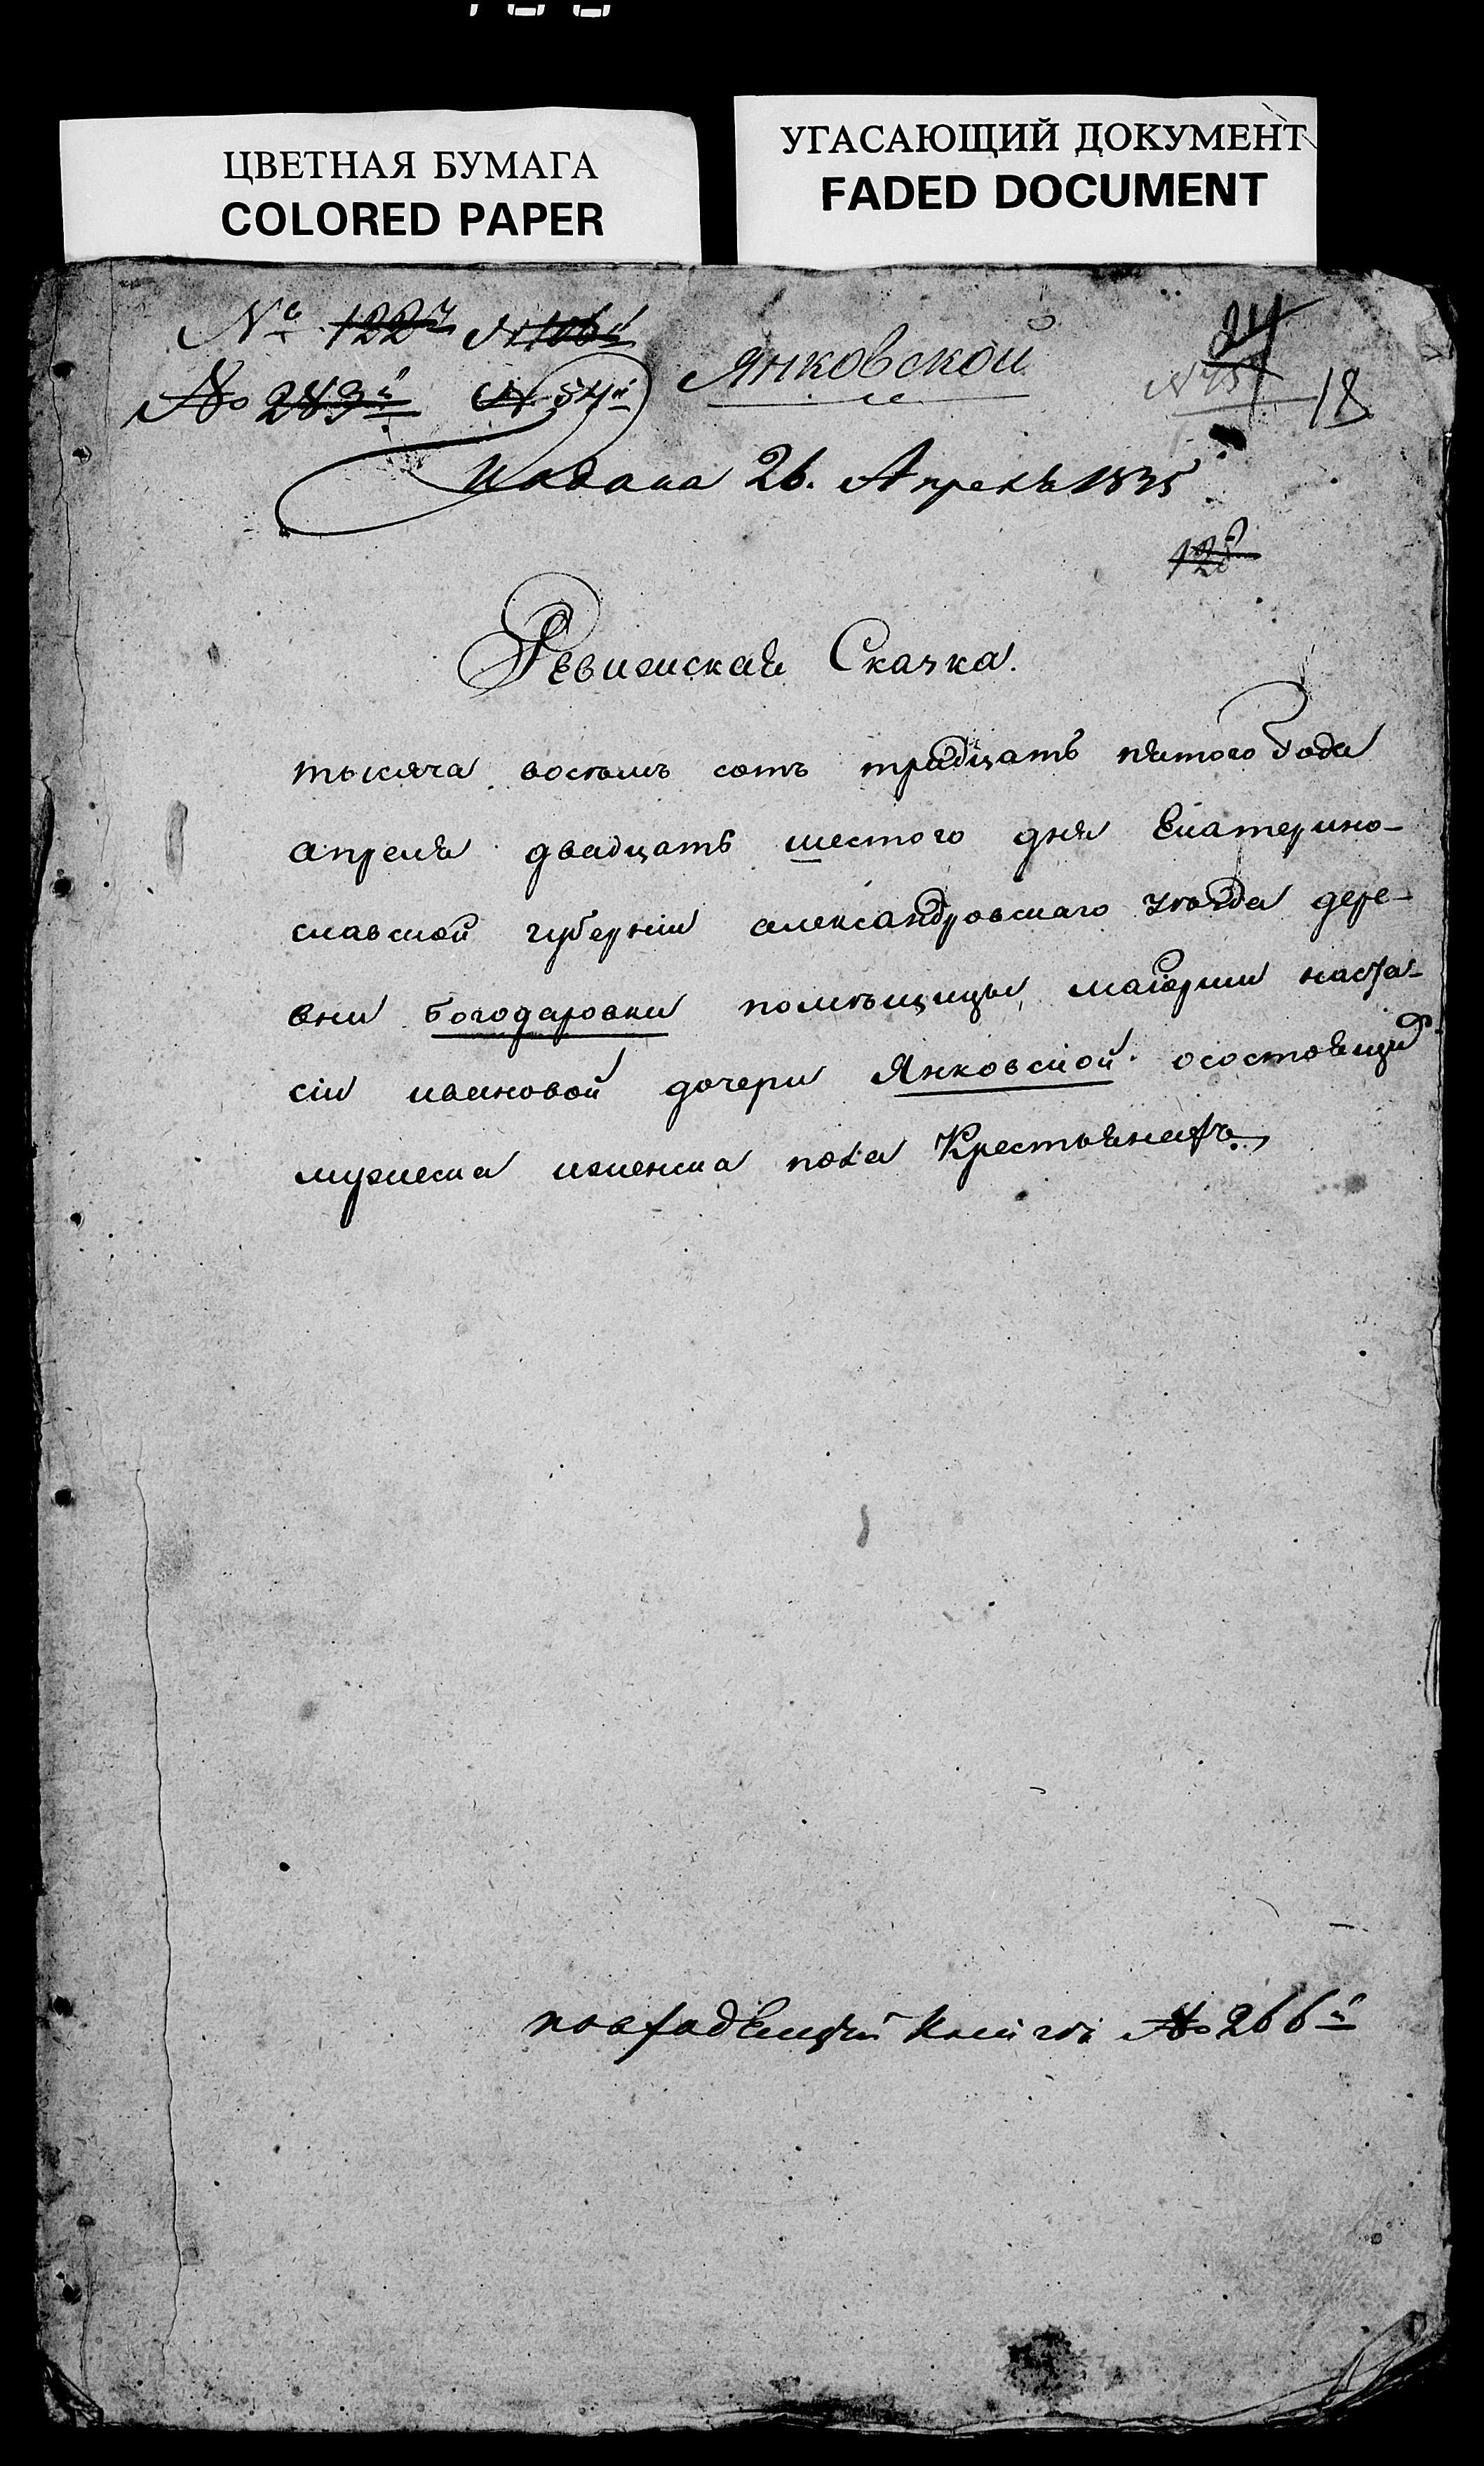 ЦВЕТНАЯ БУМАГА
COLORED PAPER
УГАСАЮЩИЙ ДОКУМЕНТ
FADED DOCUMENT
№ 122й
№ 283й № 54й Янковской 18
Подана 26. Апреля 1835
Ревизиская Сказка.
тысяча восемъ сотъ тридцать пятого Года
апреля двадцать шестого дня Екатерино-
славской губерніи александровскаго уѣзда дере-
вни Богодаровки помѣщицы маіорши наста-
сіи ивановой дочери Янковской осостоящи
мужеска иженска пола Крестьянахъ
№ 266й